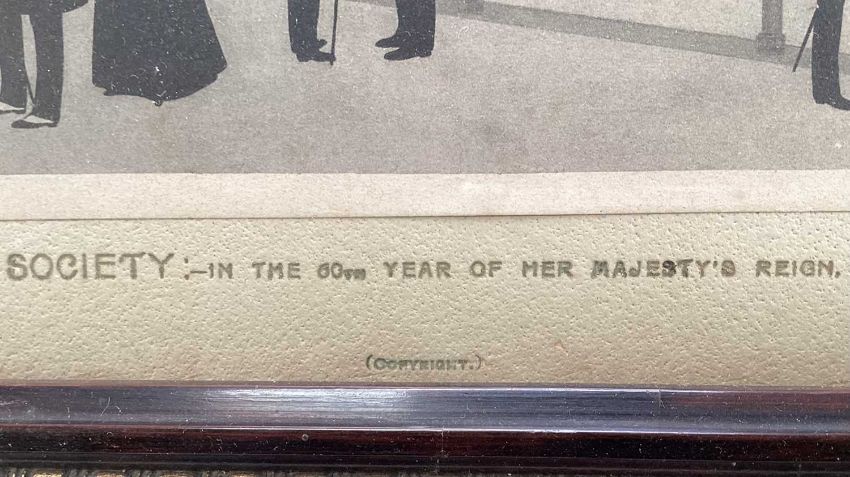 SOCIETY:—IN THE 60TH YEAR OF HER MAJESTY'S REIGN.
(COPYRIGHT.)